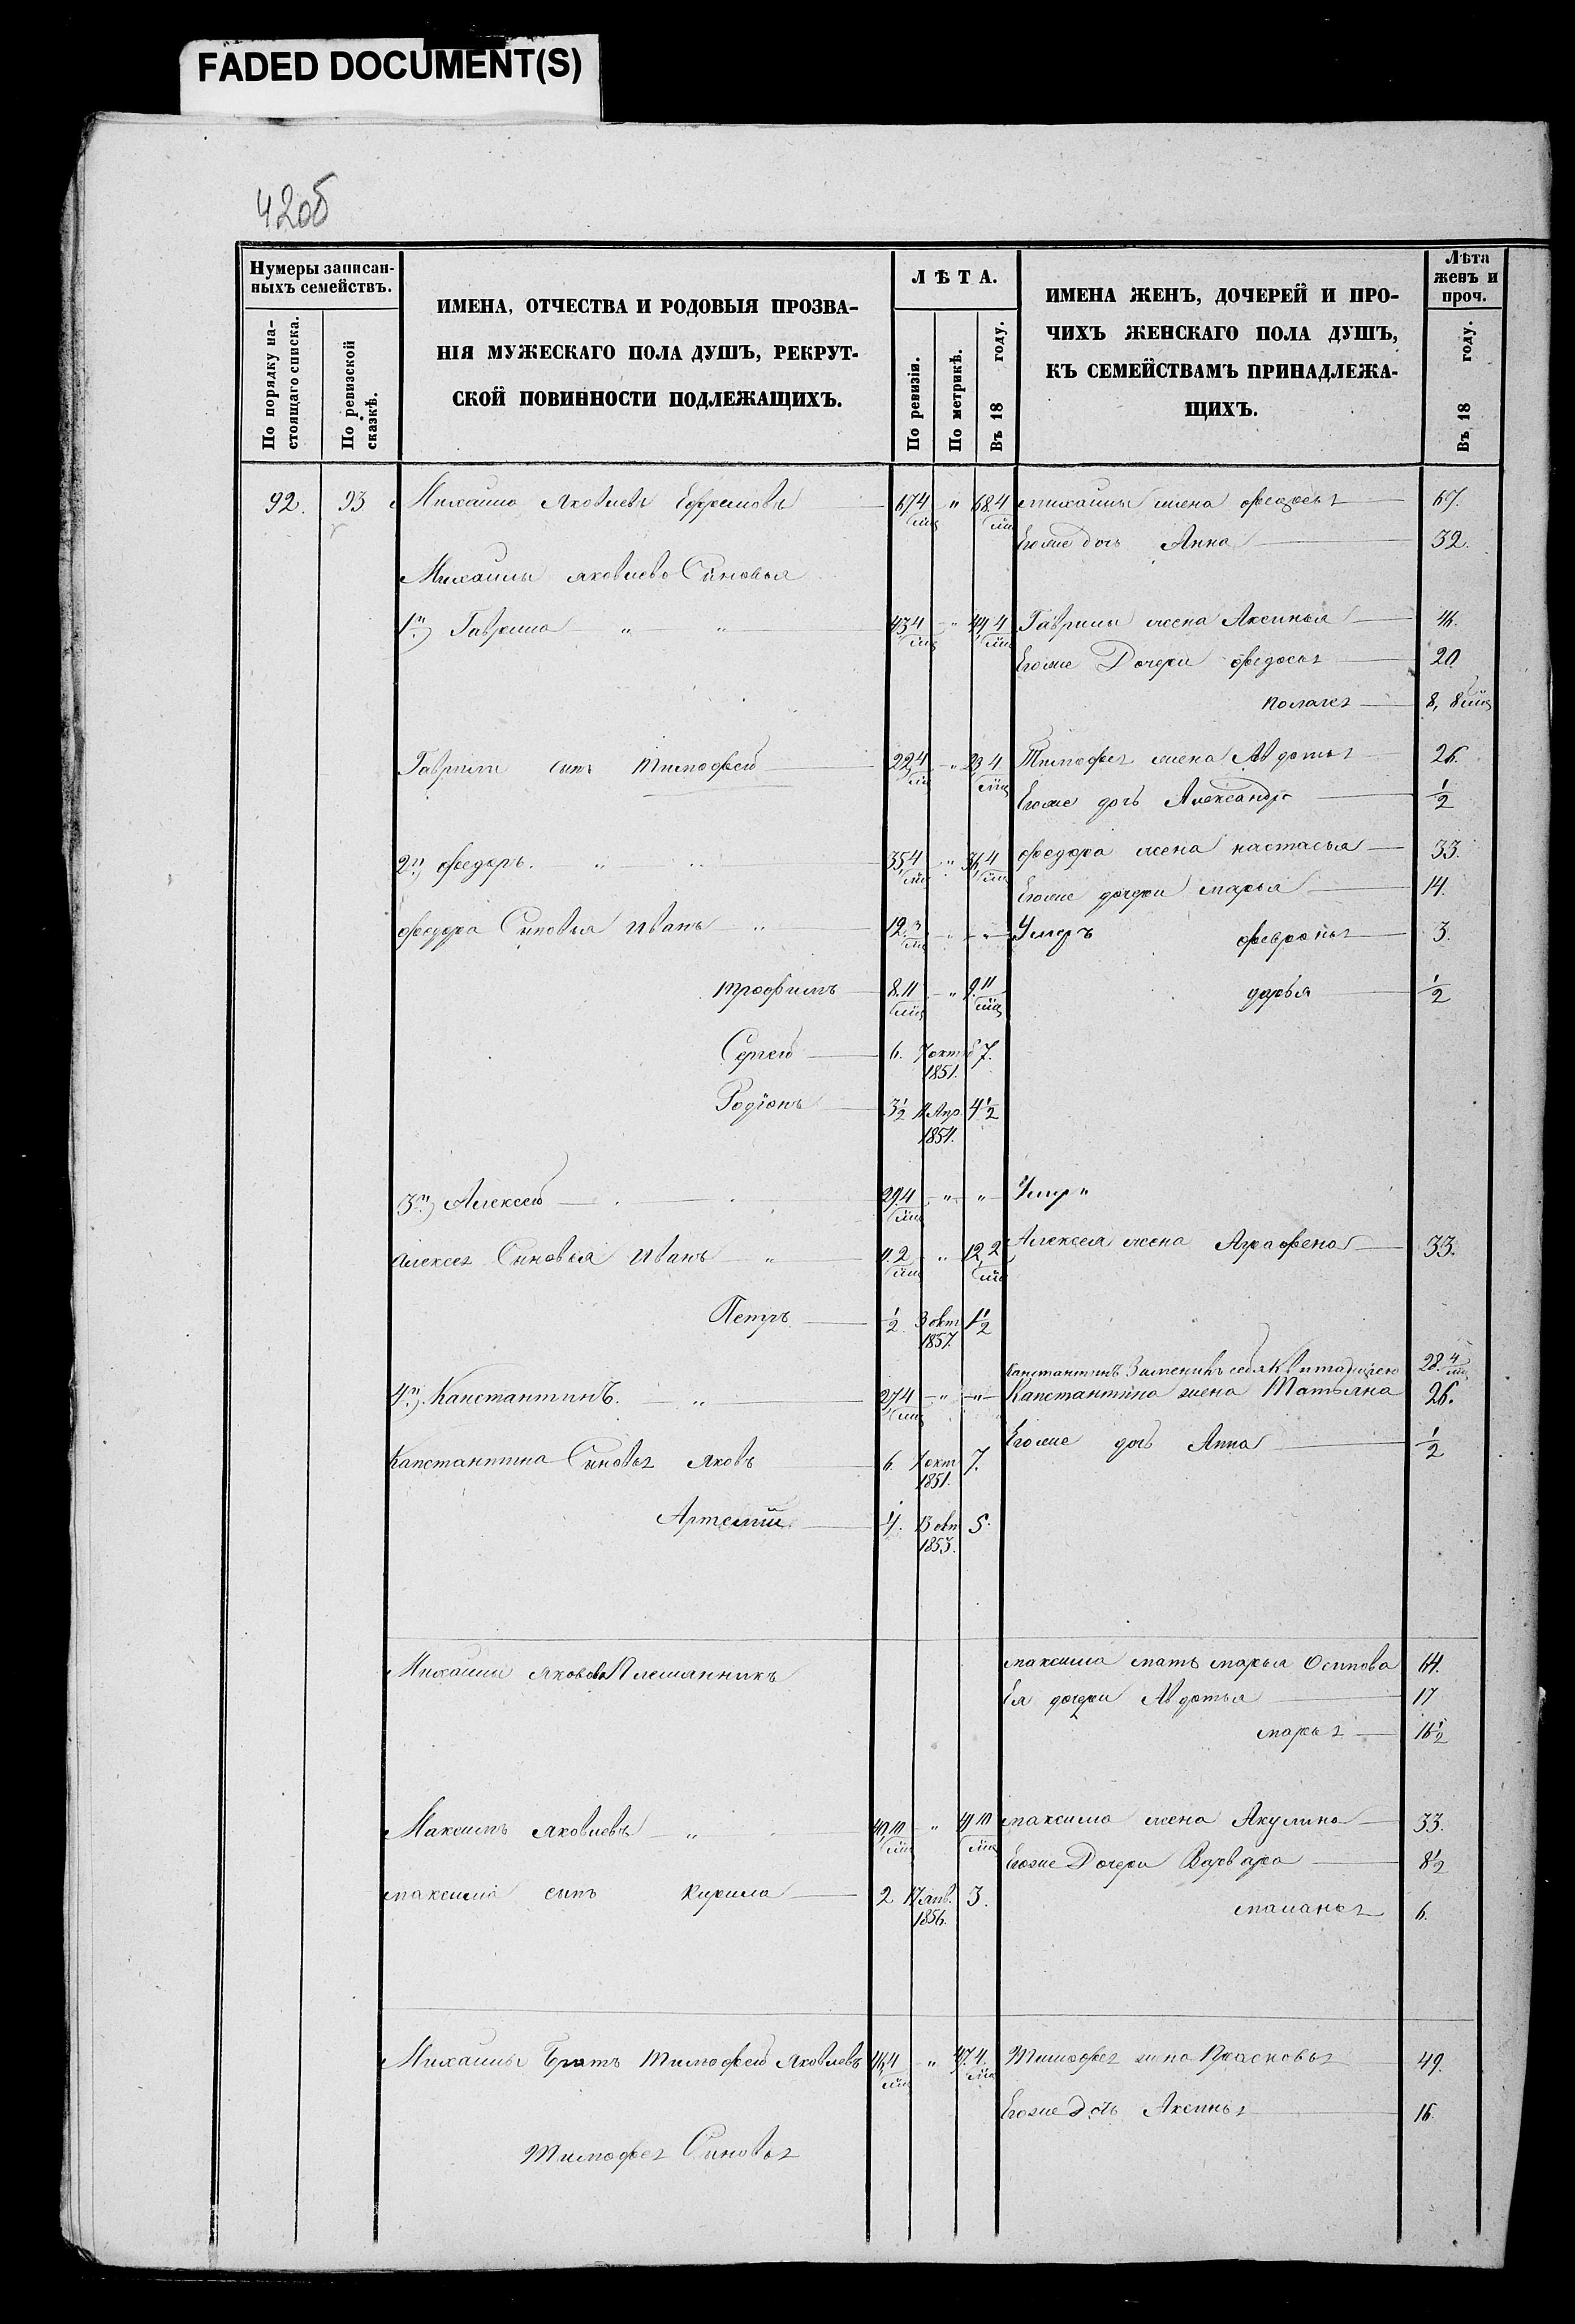 FADED DOCUMENT(S)
42об
Нумеры записан-
ныхъ семействъ.
По порядку на-
стоящаго списка.
По ревизской
сказкѣ.
ИМЕНА, ОТЧЕСТВА И РОДОВЫЯ ПРОЗВА-
НІЯ МУЖЕСКАГО ПОЛА ДУШЪ, РЕКРУТ-
СКОЙ ПОВИННОСТИ ПОДЛЕЖАЩИХЪ.
ЛѢТА.
По ревизіи.
По метрикѣ.
Въ 18 году.
ИМЕНА ЖЕНЪ, ДОЧЕРЕЙ И ПРО-
ЧИХЪ ЖЕНСКАГО ПОЛА ДУШЪ,
КЪ СЕМЕЙСТВАМЪ ПРИНАДЛЕЖА-
ЩИХЪ.
Лѣта
женъ и
проч.
Въ 18 году.
92. 93 Михаило Яковлевъ Ефремовъ 67,4 мц " 68,4 мц михаилы жена федосья 67.
Егоже дочь Анна 32.
Михаилы яковлева Сыновья
1й) Гаврила " " 43,4 мц " 44,4 мц Гаврилы жена Аксинья 46.
Егоже Дочери федосья 20.
Палагея 8, 8 мц
Гаврилы сынъ тимофей 22,4 мц " 23,4 мц Тимофея жена Авдотья 26.
Егоже дочь Александра 1/2
2й) федоръ. " " 35,4 мц " 36,4 мц федора жена настасья 33.
Егоже дочери марья 14.
федора Сыновья иванъ " 12.3 мц " " Умеръ февронья 3.
трофимъ 8.11 мц " 9.11 мц дарья 1/2
Сергей 6. 7 окт 1851. 7.
Родіонъ 3 1/2 11 Апр. 1854. 4 1/2
3й) Алексей 29.4 мц " " Умеръ
Алексея Сыновья иванъ " 11.2 мц " 12,2 мц Алексея жена Аграфена 33.
Петръ 1/2 3 окт 1857. 1 1/2
Канстантинъ Заменилъ себя Квитанцiею 28.4 мц
4й). Канстантинъ. " 27,4 мц " " Канстантина жена Татьяна 26.
Канстантина Сыновья яковъ 6. 7 окт 1851. 7. Егоже дочь Анна 1/2
Артемiй 4. 13 окт 1853. 5.
Михаилы яковлева Племянникъ
максима мать марья Осипова 64.
Ея дочери Авдотья 17
марья 16 1/2
Максимъ яковлевъ " 40,10 мц " 41,10 мц максима жена Акулина 33.
Егоже Дочери Варвара 8 1/2
максима сынъ кирила 2 17 янв. 1856. 3.
маланья 6.
Михаилы братъ тимофей яковлевъ 46,4 мц " 47.4. мц Тимофея жена Прасковья 49.
Егоже дочь Аксинья 16.
Тимофея Сыновья